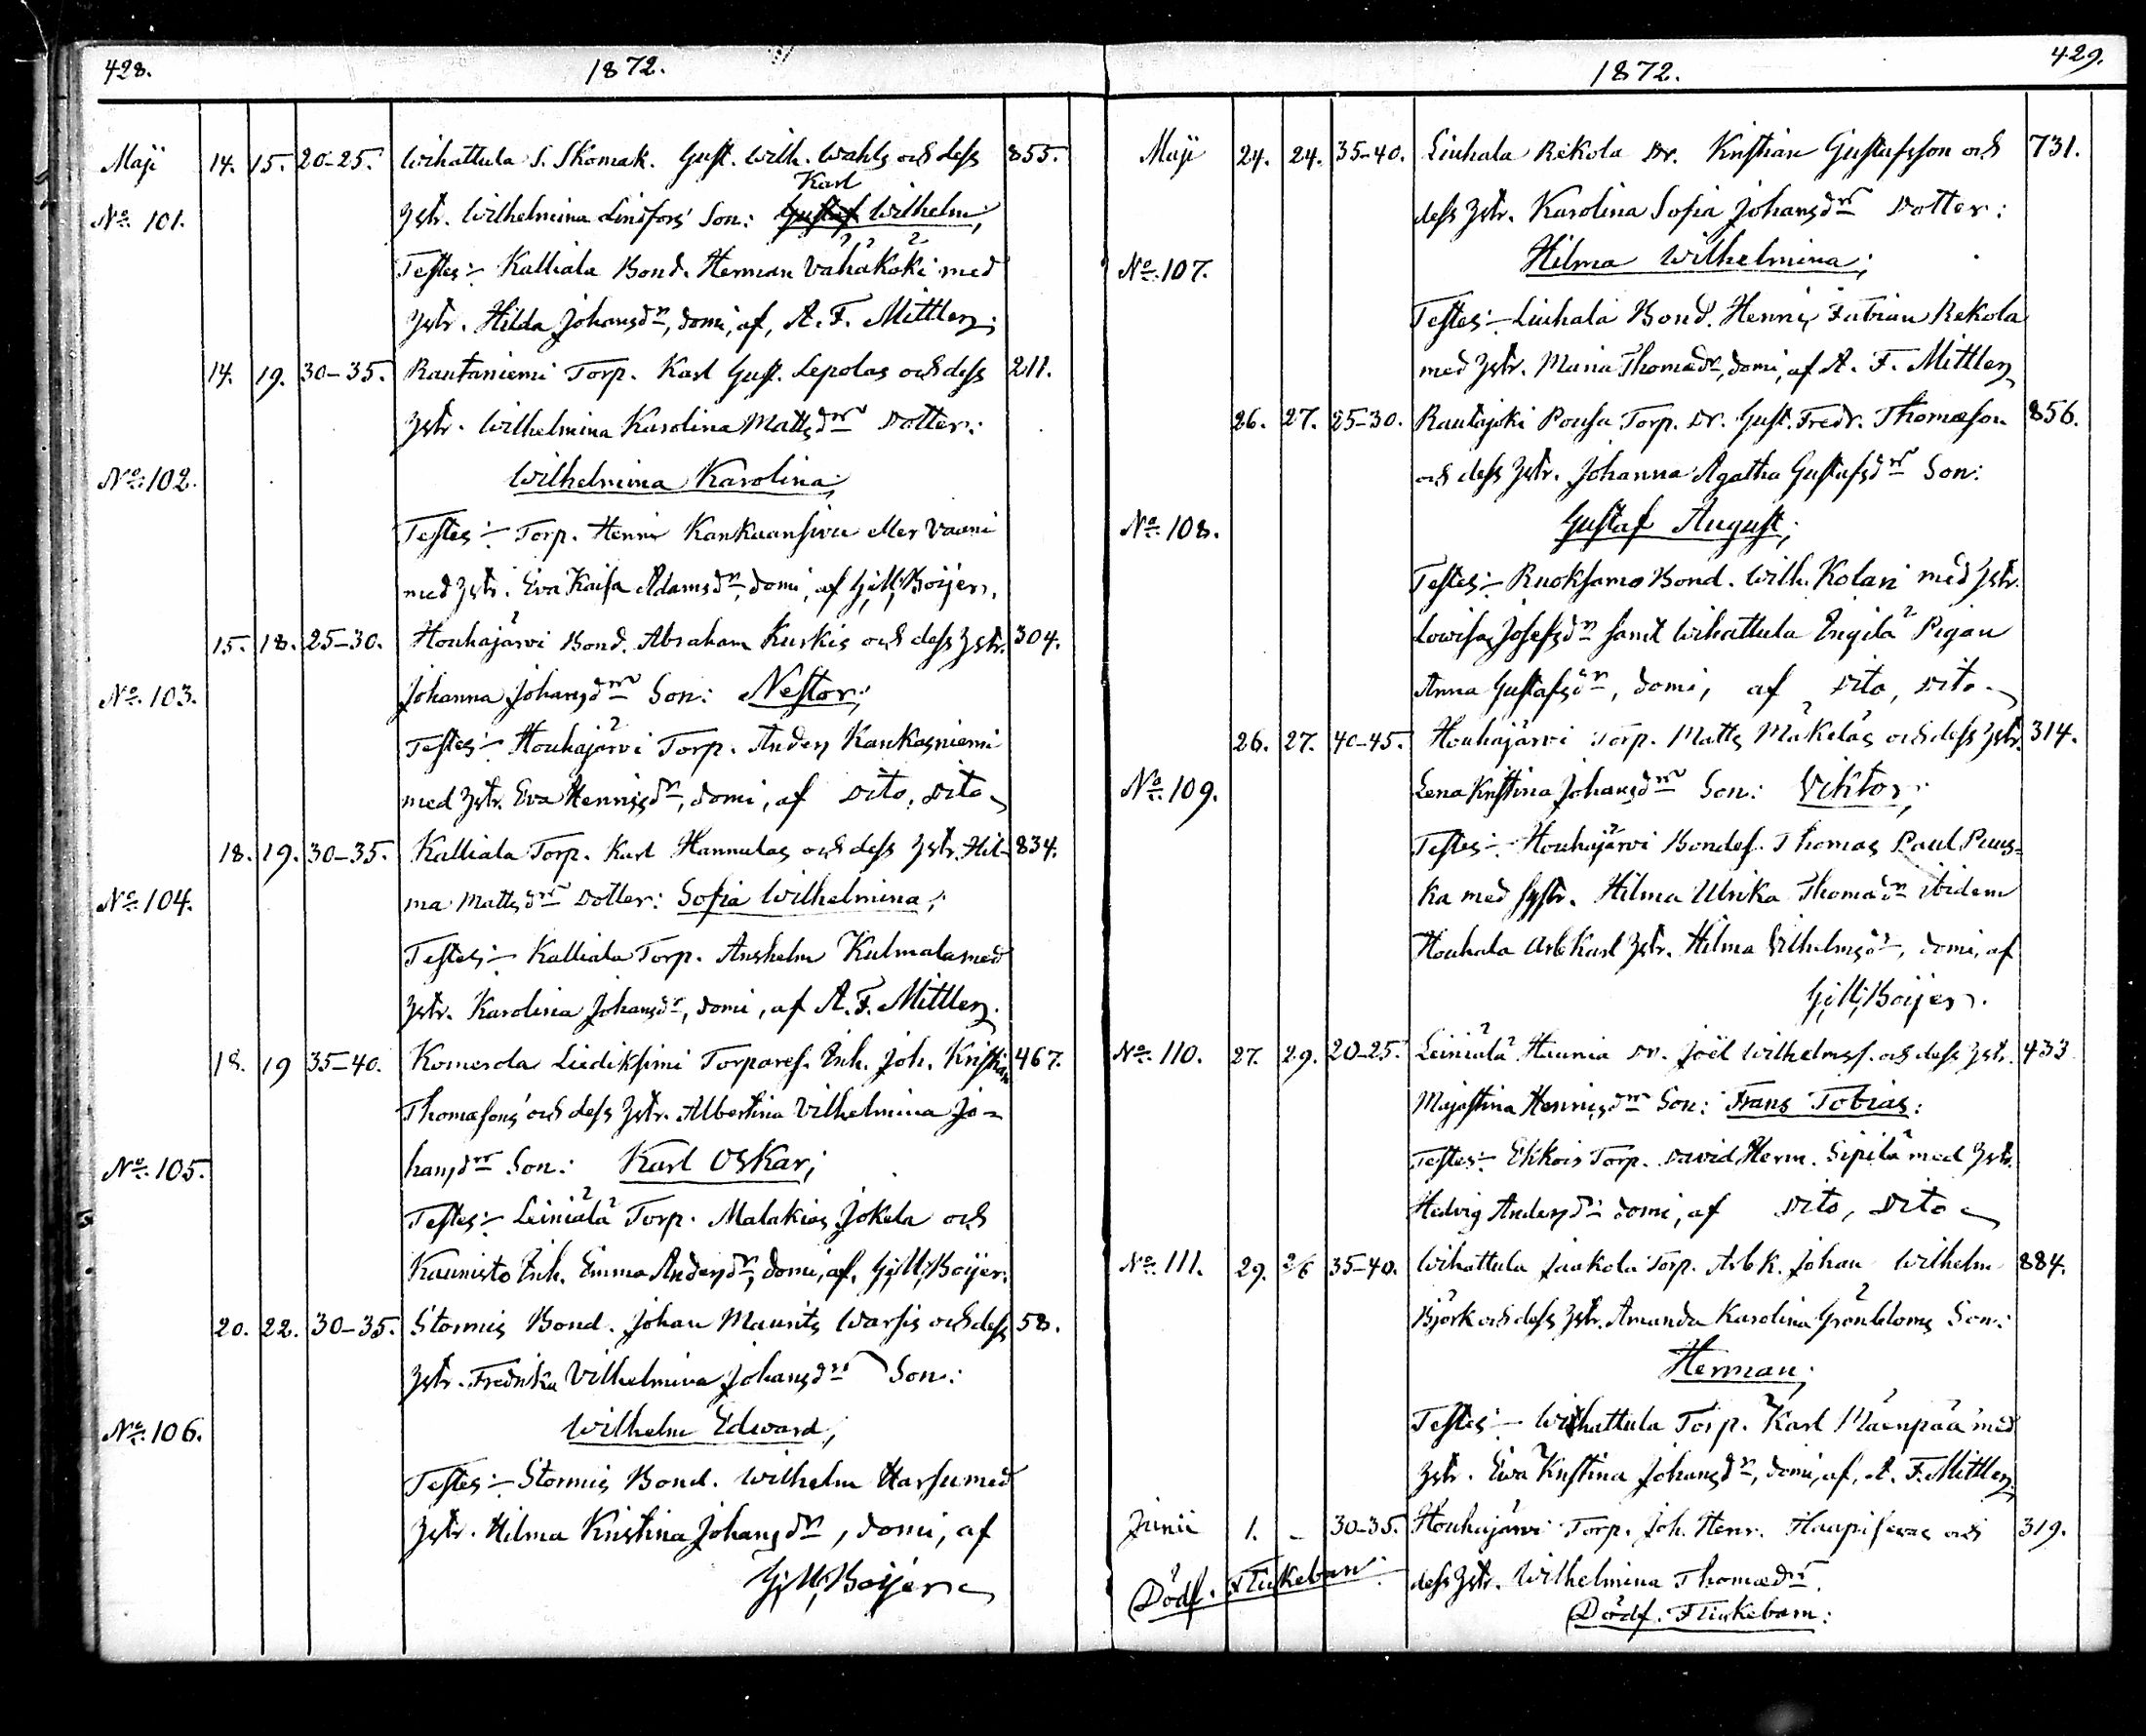 428.
1872.
Maji 14. 15. 20-25. Wihattula S. Skomak. Gust. Wilh. Wahls och dess 855.
Karl
No 101. Hstr. Wilhelmina Linsfors' Son: Gustaf Wilhelm;
Testes:- Kalliala Bond. Herman Vähäkäki med
Hstr. Hilda Johansdr, domi, af, A. F. Mittler;
14. 19. 30-35. Rautaniemi Torp. Karl Gust. Lepolas och dess 211.
Hstr. Wilhelmina Karolina Mattsdrs Dotter:
No 102. Wilhelmina Karolina;
Testes:- Torp. Henrik eller Vaani
med Hstr. Eva Kaisa Adamsdr, domi, af G: M: Boijer.
15. 18. 25-30. Houhajärvi Bond. Abraham Kuskis och dess Hstr. 304.
No 103. Johanna Johansdrs Son: Nestor;
Testes:- Houhajärvi Torp. Anders Kankasniemi
med Hstr. Eva Henricsdr, domi, af Dito, Dito
18. 19. 30-35. Kalliala Torp. Karl Hannulas och dess Hstr. Hil- 834.
No 104. ma Mattsdrs Dotter: Sofia Wilhelmina;
Testes:- Kalliala Torp. Anshelm Kulmala med
Hstr. Karolina Johansdr, domi, af A. F. Mittler.
18. 19 35-40. Komerola Liediksimi Torpares. Inh. Joh. Kristian 467.
Thomasons' och dess Hstr. Albertina Vilhelmina Jo-
No 105. hansdrs Son: Karl Oskar;
Testes:- Leiniälä Torp. Malakias Jokela och
Kaunisto Inh. Emma Andersdr, domi, af, G: M: Boijer.
20. 22. 30-35. Stormis Bond. Johan Maurits Warsis och dess 58.
Hstr. Fredrika Vilhelmina Johansdrs Son:
No 106. Wilhelm Edward;
Testes:- Stormis Bond. Wilhelm Harsu med
Hstr. Hilma Kristina Johansdr, domi, af
G: M: Boijer
429.
1872.
Maji 24. 24. 35-40. Liuhala Rekola Dr. Kristian Gustafsson och 731.
dess Hstr. Karolina Sofia Johansdrs Dotter:
No 107. Hilma Wilhelmina;
Testes:- Liuhala Bond. Henric Fabian Rekola
med Hstr. Maria Thomædr, domi, af A. F. Mittler
26. 27. 25-30. Rautajoki Pousu Torp. Dr. Gust. Fredr. Thomæson 856.
och dess Hstr. Johanna Agatha Gustafsdrs Son:
No 108. Gustaf August;
Testes:- Ruoksamo Bond. Wilh. Kolari med Hstr.
Lowisa Josefsdr samt Wihattula Ingilä Pigan
Anna Gustafsdr, domi, af Dito, Dito
26. 27. 40-45. Houhajärvi Torp. Matts Mäkeläs och dess Hstr. 314.
No 109. Lena Kristina Johansdrs Son: Viktor;
Testes:- Houhajärvi Bondes. Thomas Paul Puus-
ka med syst. Hilma Ulrika Thomædr ibidem
Houhala Arb Karl Hstr. Hilma Vilhelmsdr, domi, af
G: M: Boijer.
No 110. 27. 29. 20-25. Leiniälä Hunia Dr. Joël Wilhelmss. och dess Hstr. 433
Majastina Henricsdrs Son: Frans Tobias:
Testes:- Ekkois Torp. David Herm. Sipilä med Hstr.
Hedvig Andersdr domi, af Dito, Dito
No 111. 29. 26 35-40. Wihattula Jaakola Torp. Arb K. Johan Wilhelm 884.
Björk och dess Hstr. Amanda Karolina Grönbloms Son:
Herman;
Testes:- Wihattula Torp. Karl Mäenpää med
Hstr. Eva Kristina Johansdr, domi, af, A. F. Mittler
Junii 1. - 30-35. Houhajärvi Torp. Joh. Henr. och 319.
Dödf. Flickebarn. dess Hstr. Wilhelmina Thomædr.
Dödf. Flickebarn: